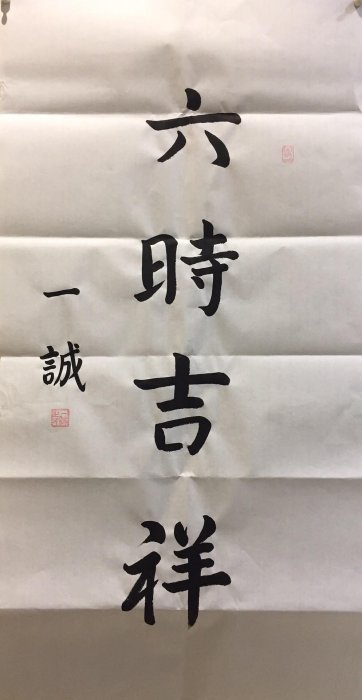 六時吉祥
一誠